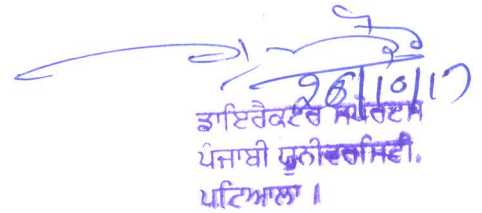 26/10/17
ਡਾਇਰੈਕਟਰ ਸਪੋਰਟਸ
ਪੰਜਾਬੀ ਯੂਨੀਵਰਸਿਟੀ.
ਪਟਿਆਲਾ।